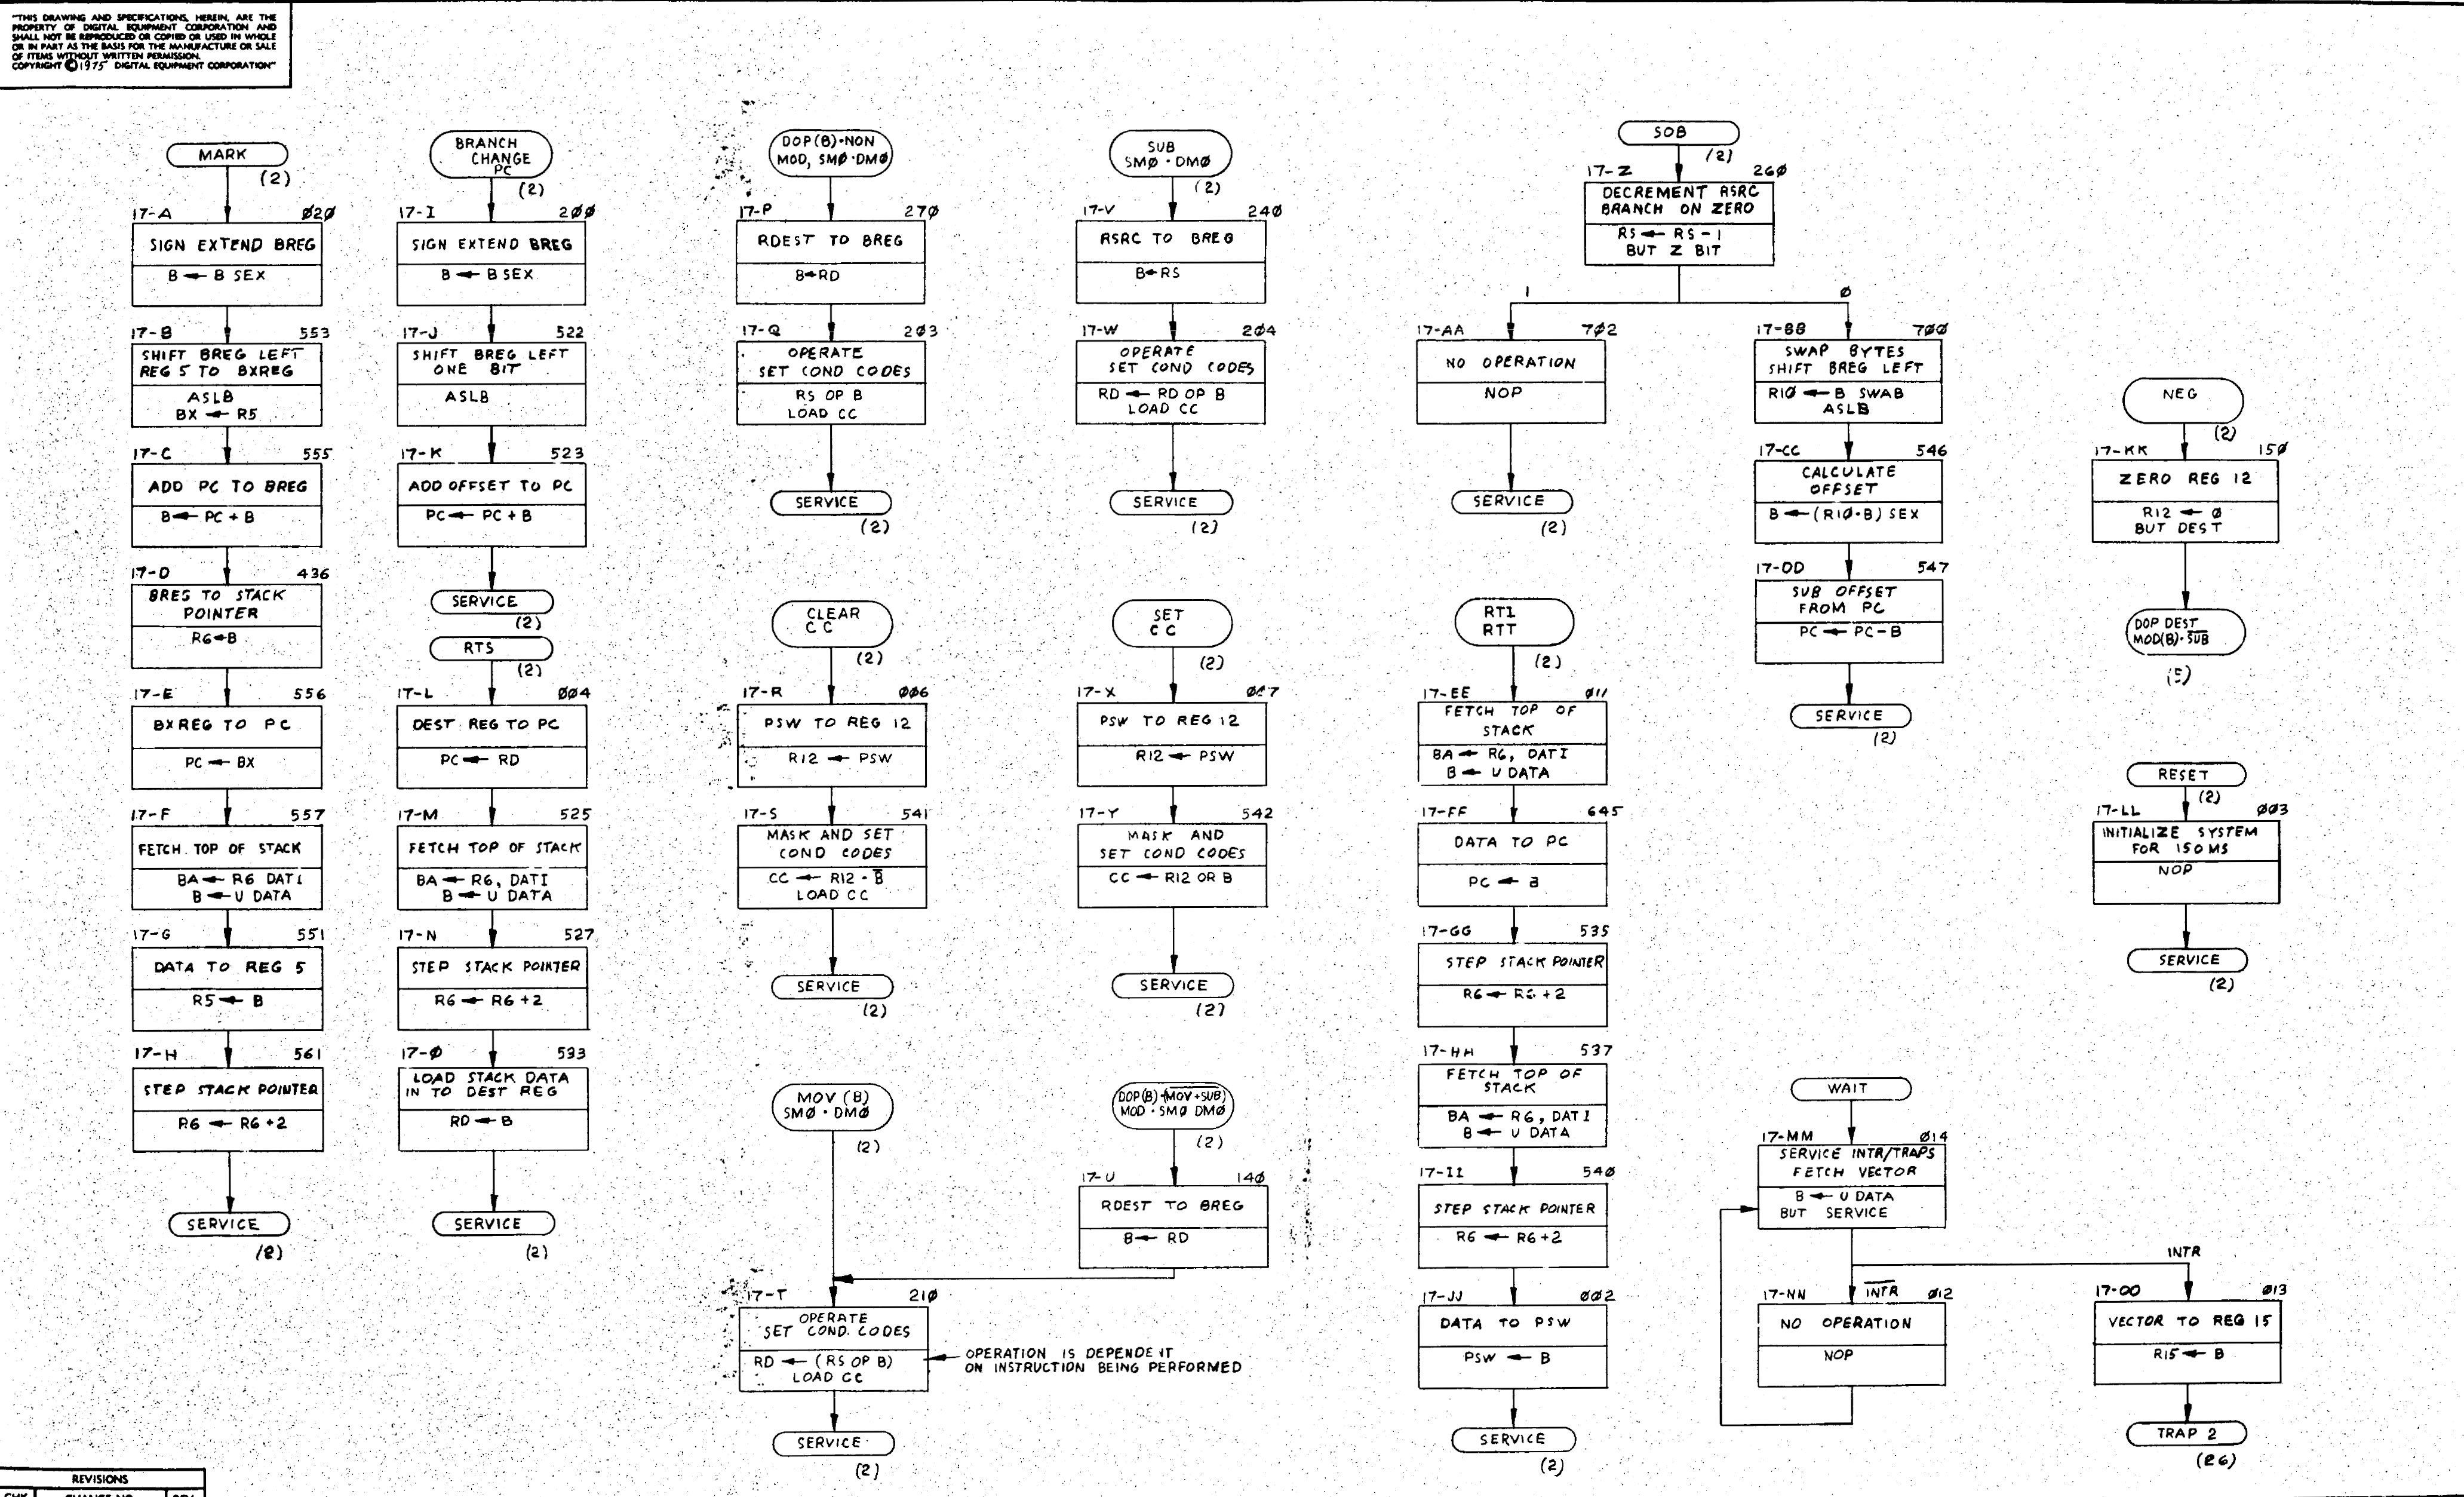 "THIS DRAWING AND SPECIFICATIONS, HEREIN, ARE THE
PROPERTY OF DIGITAL EQUIPMENT CORPORATION AND
SHALL NOT BE REPRODUCED OR COPIED OR USED IN WHOLE
OR IN PART AS THE BASIS FOR THE MANUFACTURE OR SALE
OF ITEMS WITHOUT WRITTEN PERMISSION.
COPYRIGHT ©1975 DIGITAL EQUIPMENT CORPORATION"
MARK
(2)
17-A 020
SIGN EXTEND BREG
B ← B SEX
17-B 553
SHIFT BREG LEFT
REG 5 TO BXREG
ASLB
BX ← R5
17-C 555
ADD PC TO BREG
B ← PC + B
17-D 436
BREG TO STACK
POINTER
R6←B
17-E 556
BXREG TO PC
PC ← BX
17-F 557
FETCH TOP OF STACK
BA ← R6 DATI
B ← U DATA
17-G 551
DATA TO REG 5
R5 ← B
17-H 561
STEP STACK POINTER
R6 ← R6 +2
SERVICE
(2)
BRANCH
CHANGE
PC
(2)
17-I 2ØØ
SIGN EXTEND BREG
B ← B SEX
17-J 522
SHIFT BREG LEFT
ONE BIT
ASLB
17-K 523
ADD OFFSET TO PC
PC ← PC + B
SERVICE
(2)
RTS
(2)
17-L ØØ4
DEST REG TO PC
PC ← RD
17-M 525
FETCH TOP OF STACK
BA ← R6, DATI
B ← U DATA
17-N 527
STEP STACK POINTER
R6 ← R6 +2
17-Ø 533
LOAD STACK DATA
IN TO DEST REG
RD ← B
SERVICE
(2)
DOP(B)·NON
MOD, SMØ·DMØ
(2)
17-P 27Ø
RDEST TO BREG
B←RD
17-Q 2Ø3
OPERATE
SET COND CODES
RS OP B
LOAD CC
SERVICE
(2)
CLEAR
CC
(2)
17-R ØØ6
PSW TO REG 12
R12 ← PSW
17-S 541
MASK AND SET
COND CODES
CC ← R12 · B̅
LOAD CC
SERVICE
(2)
MOV (B)
SMØ · DMØ
(2)
17-T 21Ø
OPERATE
SET COND. CODES
RD ← (RS OP B)
LOAD CC
OPERATION IS DEPENDE IT
ON INSTRUCTION BEING PERFORMED
SERVICE
(2)
SUB
SMØ · DMØ
(2)
17-V 24Ø
RSRC TO BREG
B←RS
17-W 2Ø4
OPERATE
SET COND CODES
RD ← RD OP B
LOAD CC
SERVICE
(2)
SET
CC
(2)
17-X ØØ7
PSW TO REG 12
R12 ← PSW
17-Y 542
MASK AND
SET COND CODES
CC ← R12 OR B
SERVICE
(2)
DOP(B)·(MOV+SUB)
MOD · SMØ DMØ
(2)
17-U 14Ø
RDEST TO BREG
B ← RD
SOB
(2)
17-Z 26Ø
DECREMENT RSRC
BRANCH ON ZERO
RS ← RS - 1
BUT Z BIT
1 Ø
17-AA 7Ø2
NO OPERATION
NOP
SERVICE
(2)
17-BB 7ØØ
SWAP BYTES
SHIFT BREG LEFT
R1Ø ← B SWAB
ASLB
17-CC 546
CALCULATE
OFFSET
B ← (R1Ø·B) SEX
17-DD 547
SUB OFFSET
FROM PC
PC ← PC - B
SERVICE
(2)
RTI
RTT
(2)
17-EE Ø11
FETCH TOP OF
STACK
BA ← R6, DATI
B ← U DATA
17-FF 645
DATA TO PC
PC ← B
17-GG 535
STEP STACK POINTER
R6 ← R6 +2
17-HH 537
FETCH TOP OF
STACK
BA ← R6, DATI
B ← U DATA
17-II 54Ø
STEP STACK POINTER
R6 ← R6 +2
17-JJ ØØ2
DATA TO PSW
PSW ← B
SERVICE
(2)
NEG
(2)
17-KK 15Ø
ZERO REG 12
R12 ← Ø
BUT DEST
DOP DEST
MOD(B)·S̅U̅B̅
(5)
RESET
(2)
17-LL ØØ3
INITIALIZE SYSTEM
FOR 150 MS
NOP
SERVICE
(2)
WAIT
17-MM Ø14
SERVICE INTR/TRAPS
FETCH VECTOR
B ← U DATA
BUT SERVICE
INTR
17-NN I̅N̅T̅R̅ Ø12
NO OPERATION
NOP
17-OO Ø13
VECTOR TO REG 15
R15 ← B
TRAP 2
(26)
REVISIONS